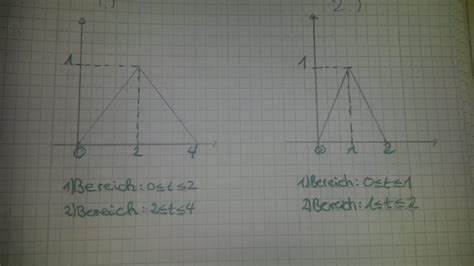 1.)
2.)
1
0 2 4
1
0 1 2
1) Bereich: 0≤t≤2
2) Bereich: 2≤t≤4
1) Bereich: 0≤t≤1
2) Bereich: 1≤t≤2